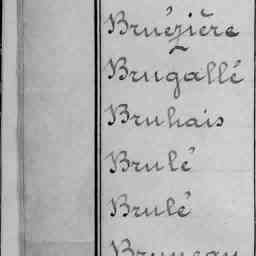 Bruézière
Brugallé
Bruhais
Brulé
Brulé
Bruneau